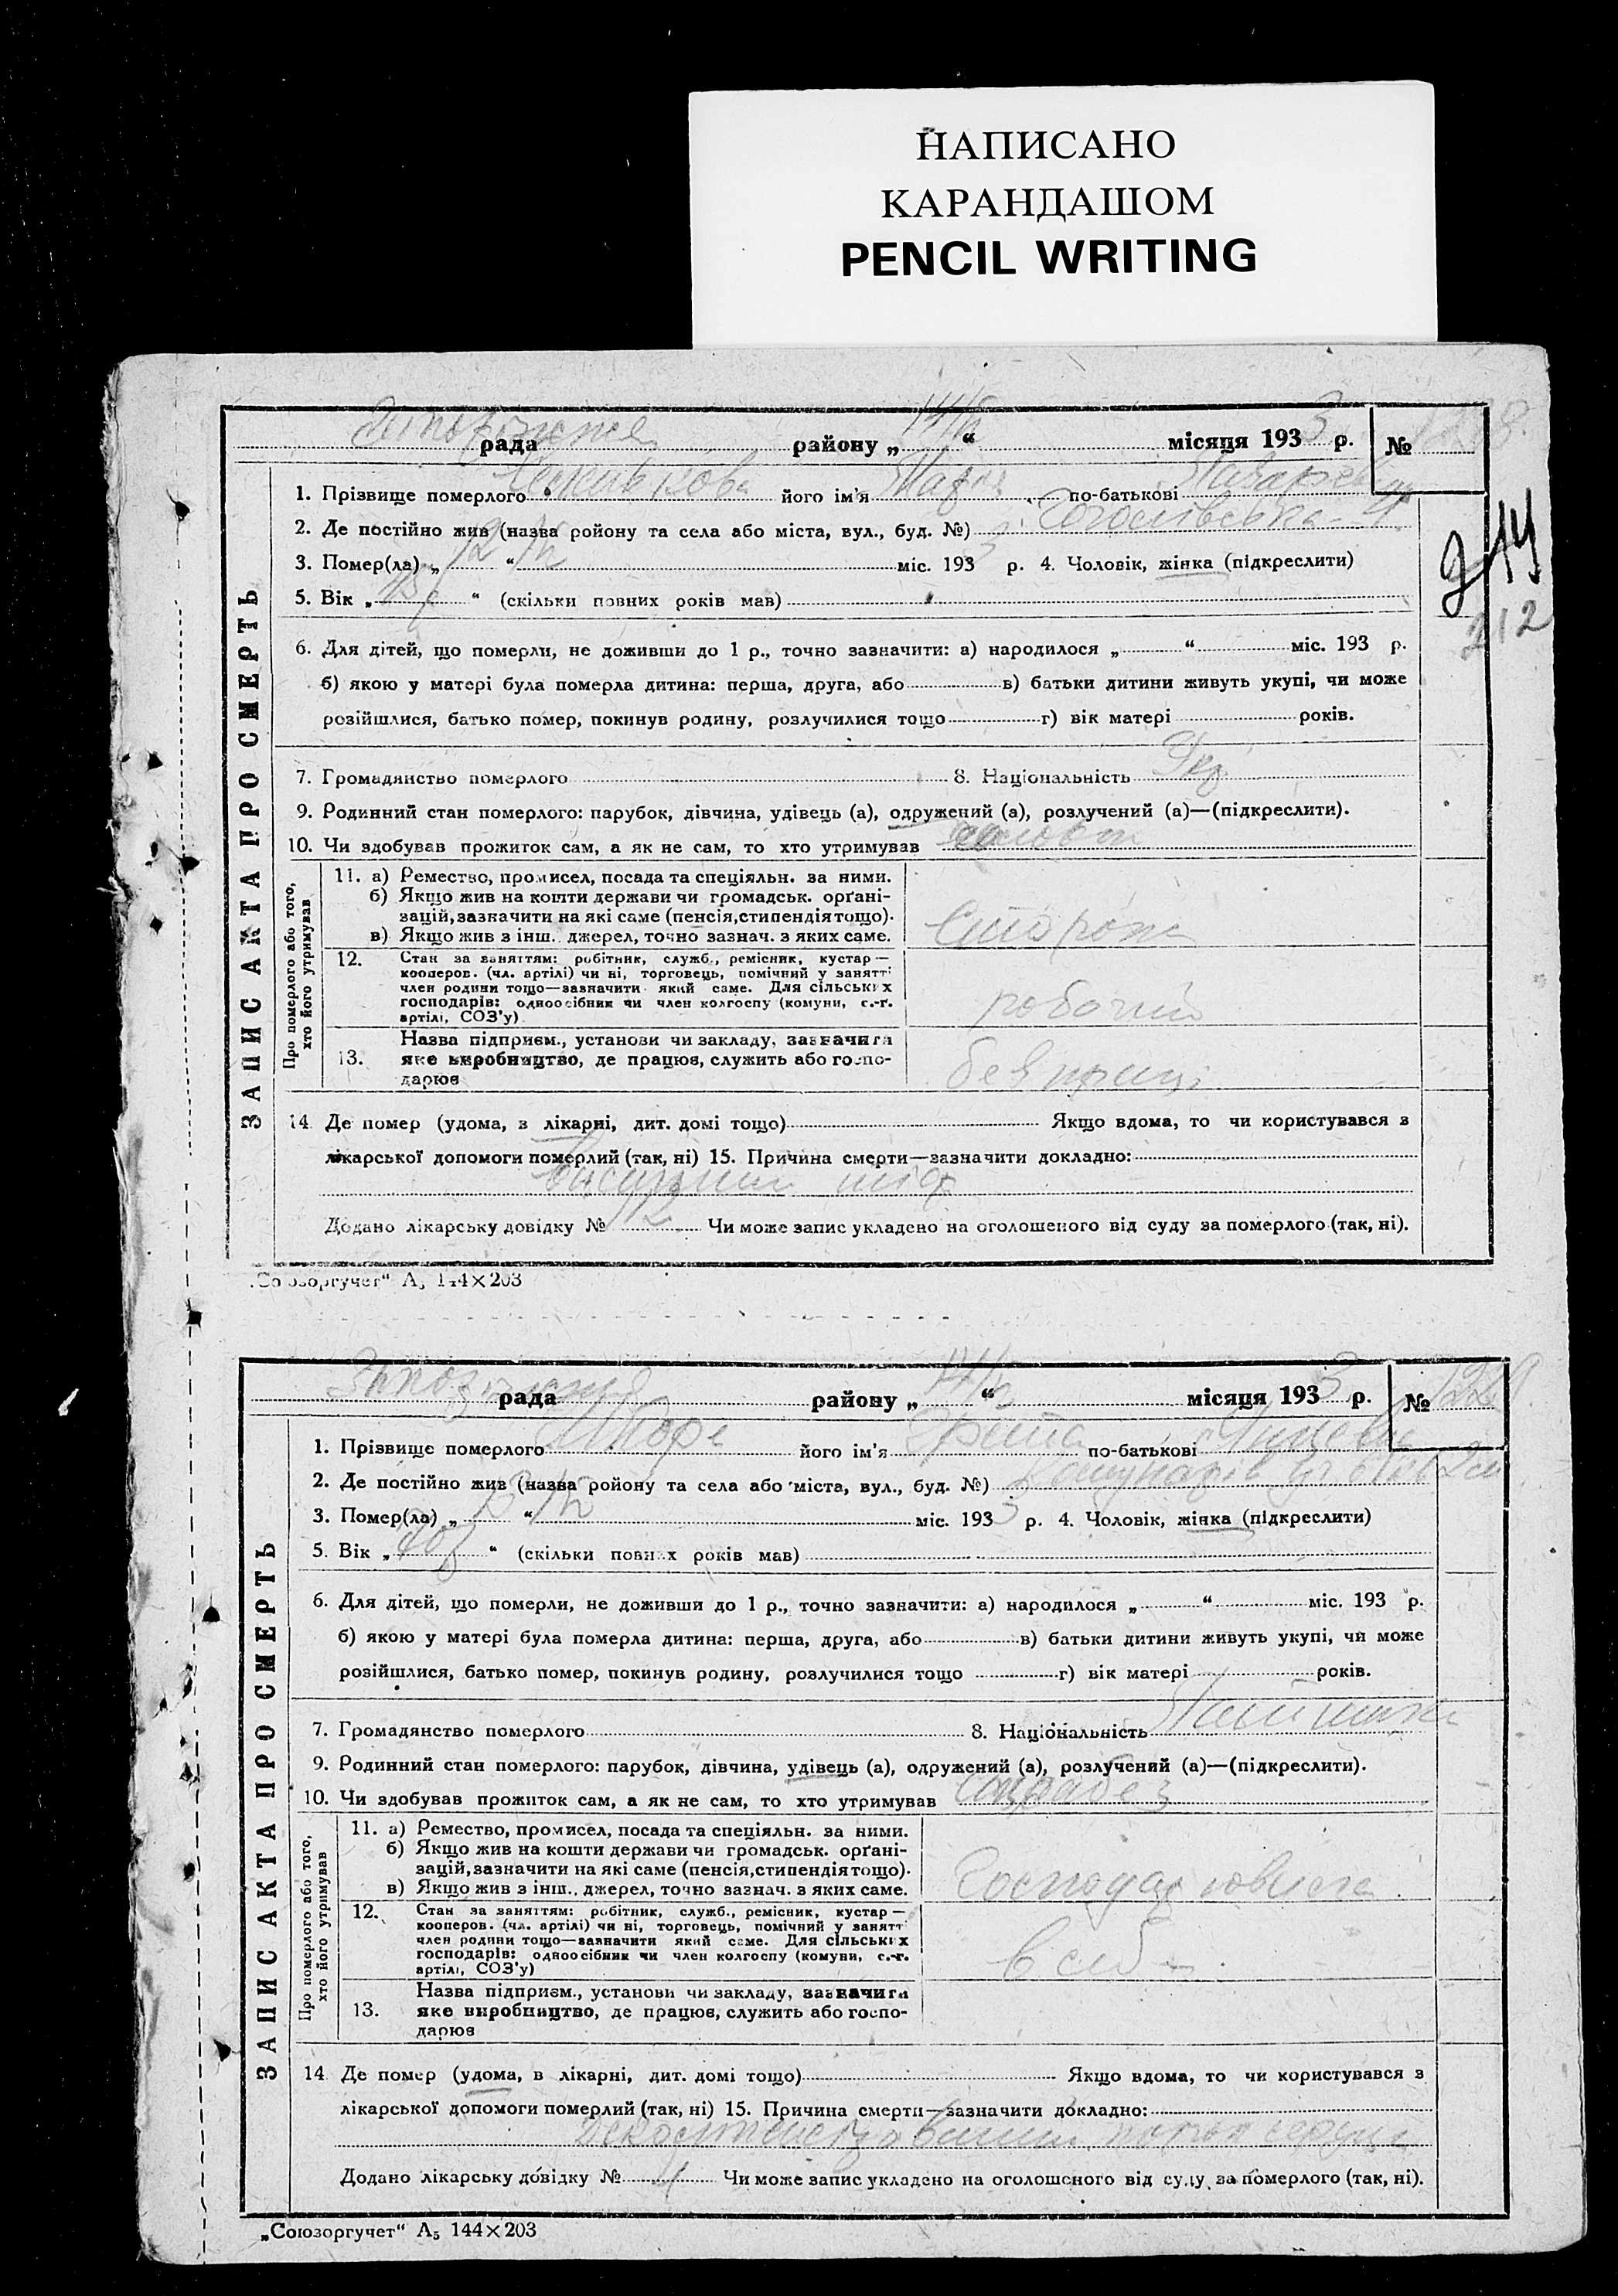 НАПИСАНО
КАРАНДАШОМ
PENCIL WRITING
рада району „ 14/IV “ місяця 193 3 р. № 1228.
1. Прізвище померлого його ім'я по-батькові
2. Де постійно жив (назва ройону та села або міста, вул., буд. №)
3. Помер(ла) „ 12 “ міс. 193 3 р. 4. Чоловік, жінка (підкреслити)
5. Вік „ “ (скільки повних років мав)
344
212
6. Для дітей, що померли, не доживши до 1 р., точно зазначити: а) народилося „ “ міс. 193 р.
б) якою у матері була померла дитина: перша, друга, або в) батьки дитини живуть укупі, чи може
розійшлися, батько помер, покинув родину, розлучилися тощо г) вік матері років.
7. Громадянство померлого 8. Національність Укр
9. Родинний стан померлого: парубок, дівчина, удівець (а), одружений (а), розлучений (а)—(підкреслити).
10. Чи здобував прожиток сам, а як не сам, то хто утримував
ЗАПИС АКТА ПРО СМЕРТЬ
Про померлого або того,
хто його утримував
11. а) Ремество, промисел, посада та спеціяльн. за ними.
б) Якщо жив на кошти держави чи громадськ. орґані-
зацій, зазначити на які саме (пенсія, стипендія тощо).
в) Якщо жив з інш. джерел, точно зазнач. з яких саме.
Сторож
12. Стан за заняттям: робітник, служб., ремісник, кустар—
кооперов. (чл. артілі) чи ні, торговець, помічний у занятті
член родини тощо—зазначити який саме. Для сільських
господарів: одноосібник чи член колгоспу (комуни, с.-г.
артілі, СОЗ'у)
робочий
13. Назва підприєм., установи чи закладу, зазначити
яке виробництво, де працює, служить або госпо-
дарює
без праці
14 Де помер (удома, в лікарні, дит. домі тощо) Якщо вдома, то чи користувався з
лікарської допомоги померлий (так, ні) 15. Причина смерти—зазначити докладно:
тиф
Додано лікарську довідку № 2 Чи може запис укладено на оголошеного від суду за померлого (так, ні).
„Союзоргучет“ А₅ 144×203
рада району „ 14/IV “ місяця 193 3 р. № 1229
1. Прізвище померлого його ім'я по-батькові
2. Де постійно жив (назва ройону та села або міста, вул., буд. №)
3. Помер(ла) „ “ міс. 193 3 р. 4. Чоловік, жінка (підкреслити)
5. Вік „ “ (скільки повних років мав)
6. Для дітей, що померли, не доживши до 1 р., точно зазначити: а) народилося „ “ міс. 193 р.
б) якою у матері була померла дитина: перша, друга, або в) батьки дитини живуть укупі, чи може
розійшлися, батько помер, покинув родину, розлучилися тощо г) вік матері років.
7. Громадянство померлого 8. Національність
9. Родинний стан померлого: парубок, дівчина, удівець (а), одружений (а), розлучений (а)—(підкреслити).
10. Чи здобував прожиток сам, а як не сам, то хто утримував
ЗАПИС АКТА ПРО СМЕРТЬ
Про померлого або того,
хто його утримував
11. а) Ремество, промисел, посада та спеціяльн. за ними.
б) Якщо жив на кошти держави чи громадськ. орґані-
зацій, зазначити на які саме (пенсія, стипендія тощо).
в) Якщо жив з інш. джерел, точно зазнач. з яких саме.
12. Стан за заняттям: робітник, служб., ремісник, кустар—
кооперов. (чл. артілі) чи ні, торговець, помічний у занятті
член родини тощо—зазначити який саме. Для сільських
господарів: одноосібник чи член колгоспу (комуни, с.-г.
артілі, СОЗ'у)
13. Назва підприєм., установи чи закладу, зазначити
яке виробництво, де працює, служить або госпо-
дарює
14 Де помер (удома, в лікарні, дит. домі тощо) Якщо вдома, то чи користувався з
лікарської допомоги померлий (так, ні) 15. Причина смерти—зазначити докладно:
порок серця
Додано лікарську довідку № Чи може запис укладено на оголошеного від суду за померлого (так, ні).
„Союзоргучет“ А₅ 144×203